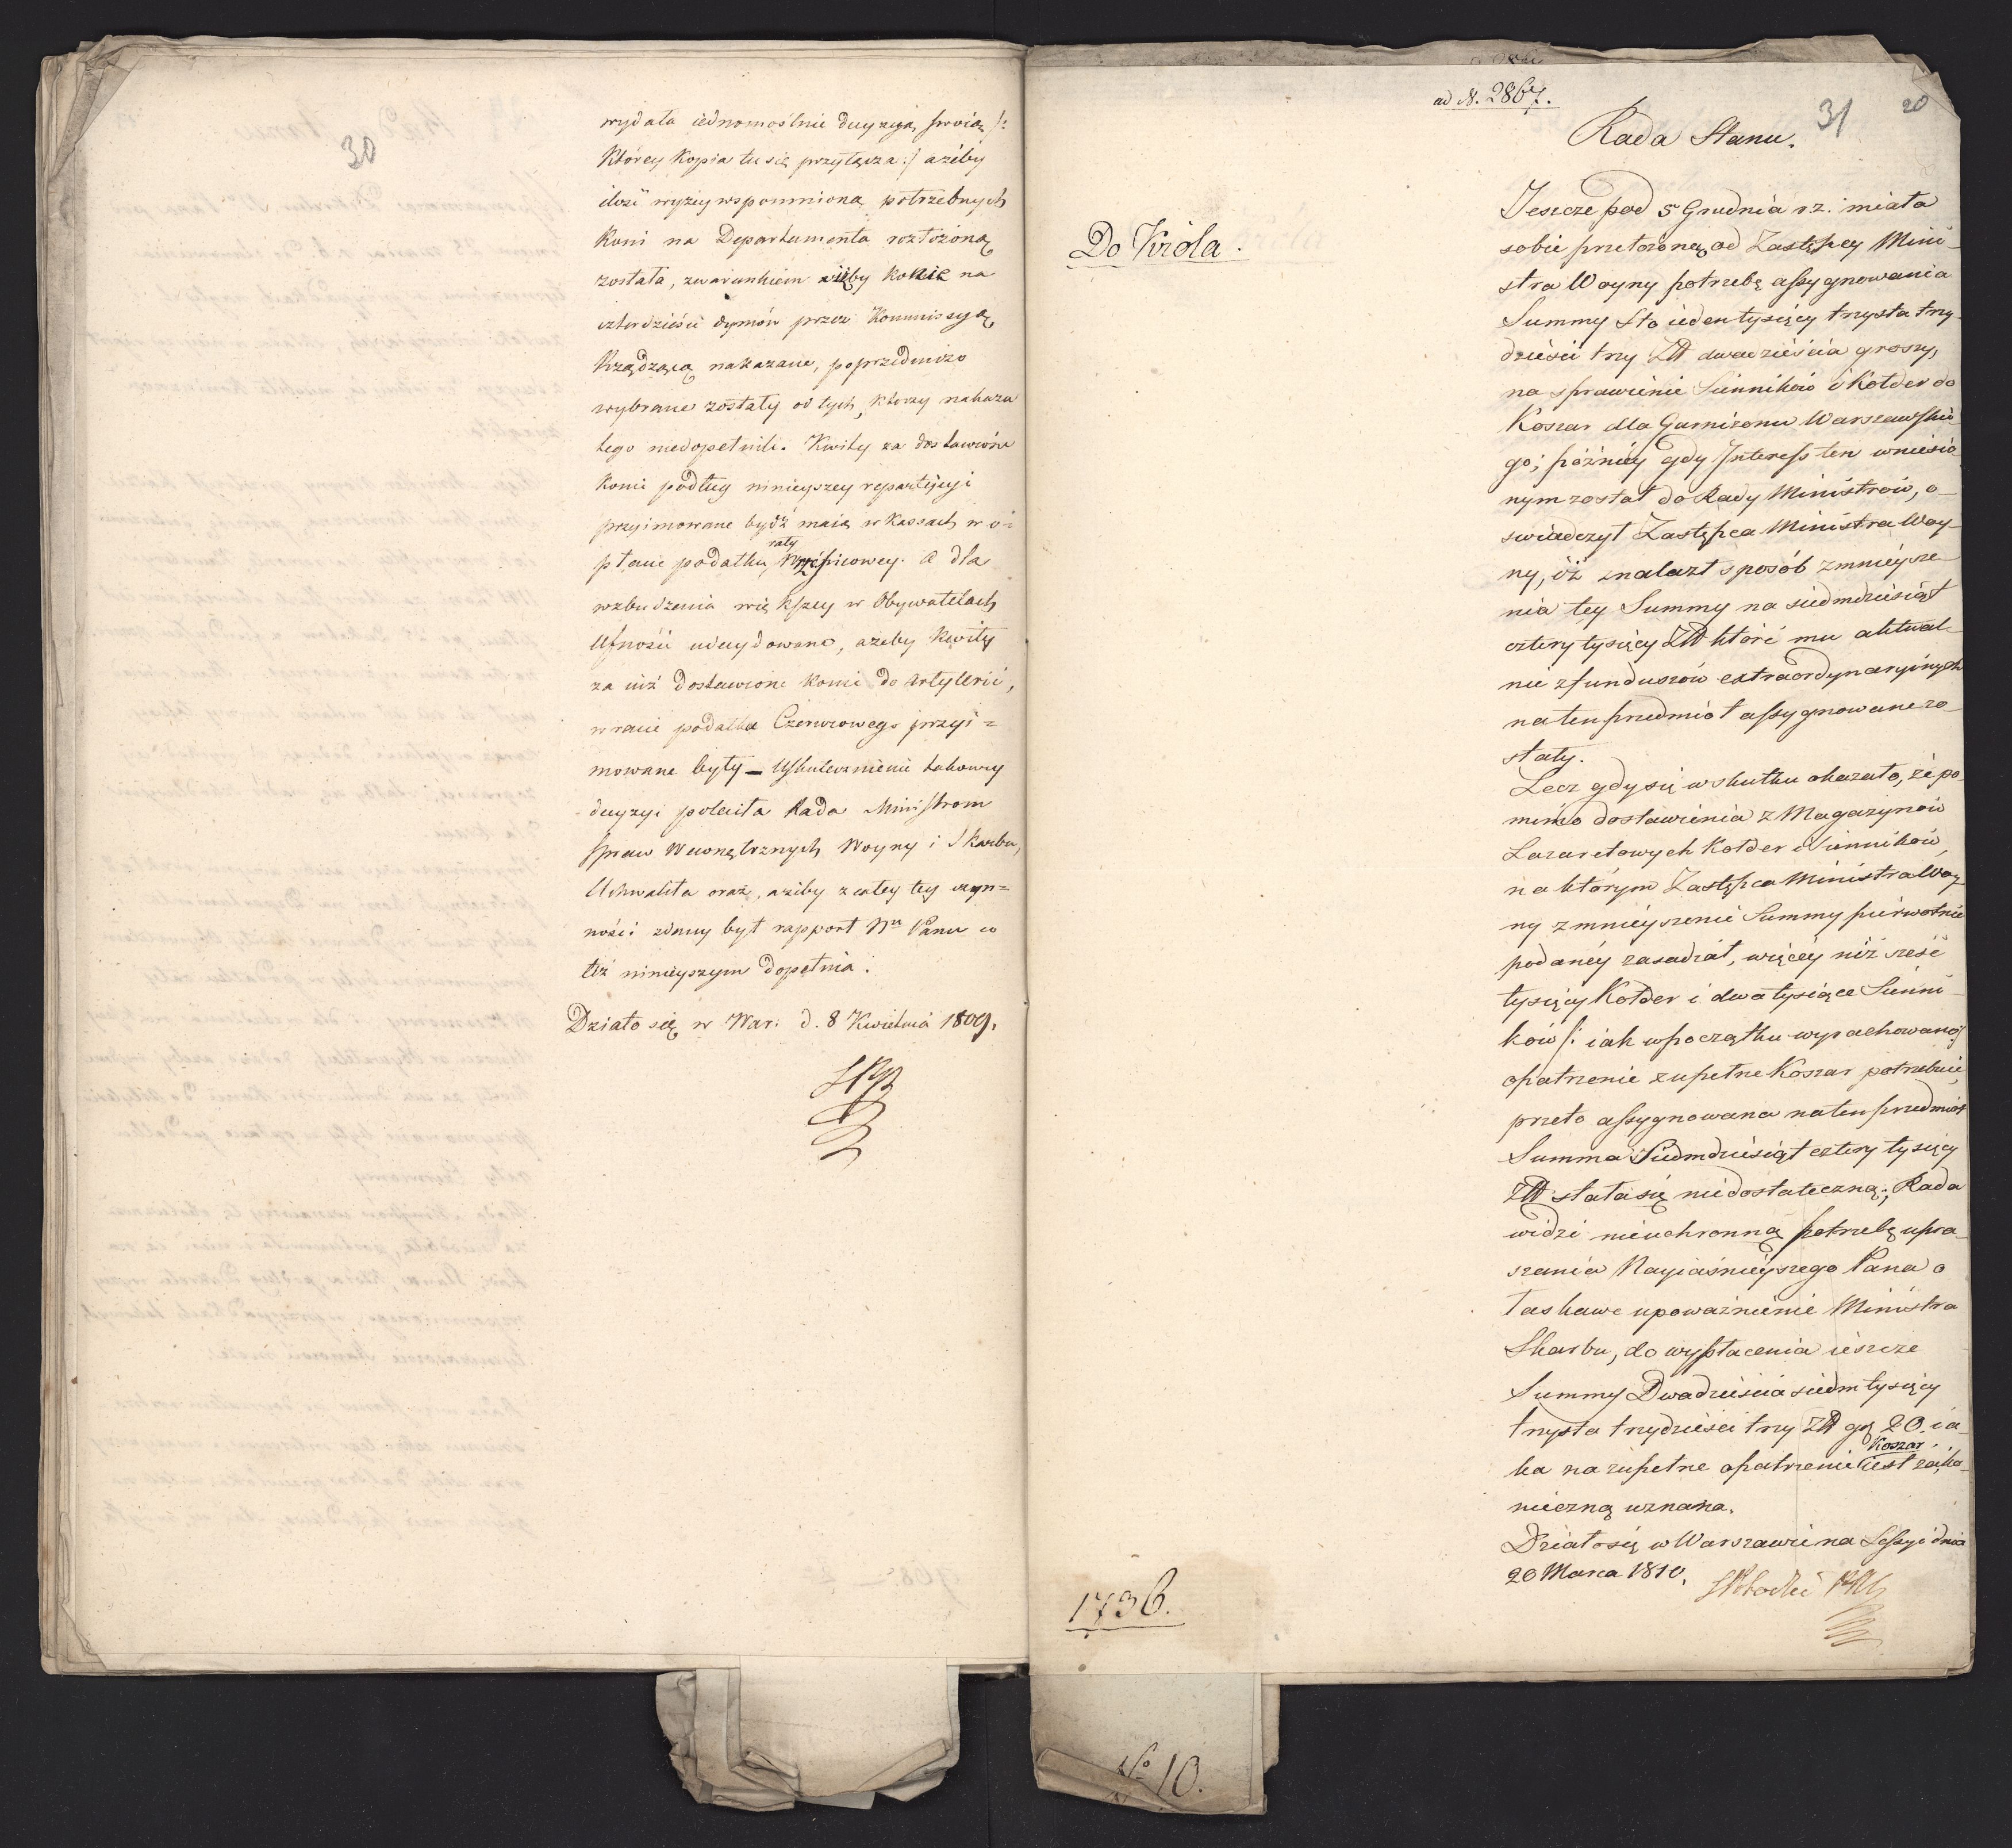 30
wydała iednomoślnie decyzyą swoią /:
Którey Kopia tu się przyłącza :/ ażeby
ilość wyżey wspomniona potrzebnych
Koni na Departamenta rozłożoną
została, z warunkiem ażeby konie na
czterdzieści dymów przez Kommissyą
Rządzącą nakazane, poprzedniczo
wybrane zostały od tych, którzy nakazu
tego niedopełnili. Kwity za dostawione
Konie podług ninieyszey repartycyi
przyimowane bydź maią w Kassach w o=
płacie podatku raty Wrześniowey. a dla
wzbudzenia większey w Obywatelach
Ufności udecydowano, ażeby Kwity
za iuż dostawione konie do Artylerii,
w racie podatku Czerwcowego przyi=
mowane były – Uskutecznienie takowey
decyzyi poleciła Rada Ministrom
Spraw Wewnętrznych Woyny i Skarbu,
Uchwaliła oraz, ażeby z całey tey czyn=
ności zdany był rapport Nu Panu co
też ninieyszym dopełnia.
Działo się w War: d. 8 Kwietnia 1809.
ad N. 2867.
31
20
Rada Stanu.
Do Króla.
Jeszcze pod 5 Grudnia r.z. miała
sobie przełożoną od Zastępcy Mini-
stra Woyny potrzebę assygnowania
Summy sto ieden tysięcy trzysta trzy-
dzieści trzy Złł dwadzieścia groszy,
na sprawienie Sienników i Kołder do
Koszar dla Garnizonu Warszawskie-
go; późniéy gdy Interess ten wniesio-
nym został do Rady Ministrów, o-
świadczył Zastępca Ministra Woy-
ny, iż znalazł sposób zmnieysze-
nia tey Summy na siedmdziesiąt
cztery tysięcy Złł które mu aktual-
nie z funduszów extraordynaryinych
na ten przedmiot assygnowane zo-
stały.
Lecz gdy się w skutku okazało, że po-
mimo dostawienia z Magazynów
Lazaretowych Kołder i Sienników,
na którym Zastępca Ministra Woy-
ny zmnieyszenie Summy pierwotnie
podanéy zasadzał, więcéy niż sześć
tysięcy Kołder i dwa tysiące Sienni-
ków /: iak w początku wyrachowano :/
opatrzenie zupełne Koszar potrzebuie,
przeto assygnowana na ten przedmiot
Summa Siedmdziesiąt cztery tysięcy
Złł stała się niedostateczną; Rada
widzi nieuchronną potrzebę upra-
szania Nayiaśnieyszego Pana o
łaskawe upoważnienie Ministra
Skarbu, do wypłacenia ieszcze
Summy Dwadzieścia siedm tysięcy
trzysta trzydzieści trzy Złł gr 20. ia-
ka na zupełne opatrzenie Koszar iest za ko-
nieczną uznana.
Działo się w Warszawie na Sessyi dnia
20 Marca 1810.
1736.
No 10.